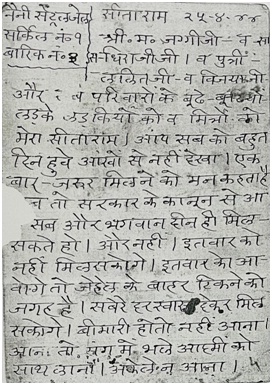 नैनी सेंट्रल जेल सीताराम २५-४-४४
सर्किल नं० १ श्री. म. जगीजी- व सा
बारिक नं० ३ ! व पुत्री-
ललित जी- व विनया जी
और परिवारों के बूढे-
लडके लडकियों को व मित्रों को
मेरा सीताराम। आप सब को बहुत
दिन हुवे आंखों से नहीं देखा। एक
बार- जरूर मिलने को मन कहता है
तो सरकार के कानून से आ
सब और भगवान दीन ही मिल
सकते हो। और नहीं। इतवार को
नहीं मिल सकोगे। इतवार को आ-
वोगे तो जेहल के बाहर टिकने को
जगह है। सबेरे दरखास्त देकर मिल
सकोगे। बीमारी हो तो नहीं आना।
आना तो संग में भले आदमी को
साथ लाना। अकेले न आना।